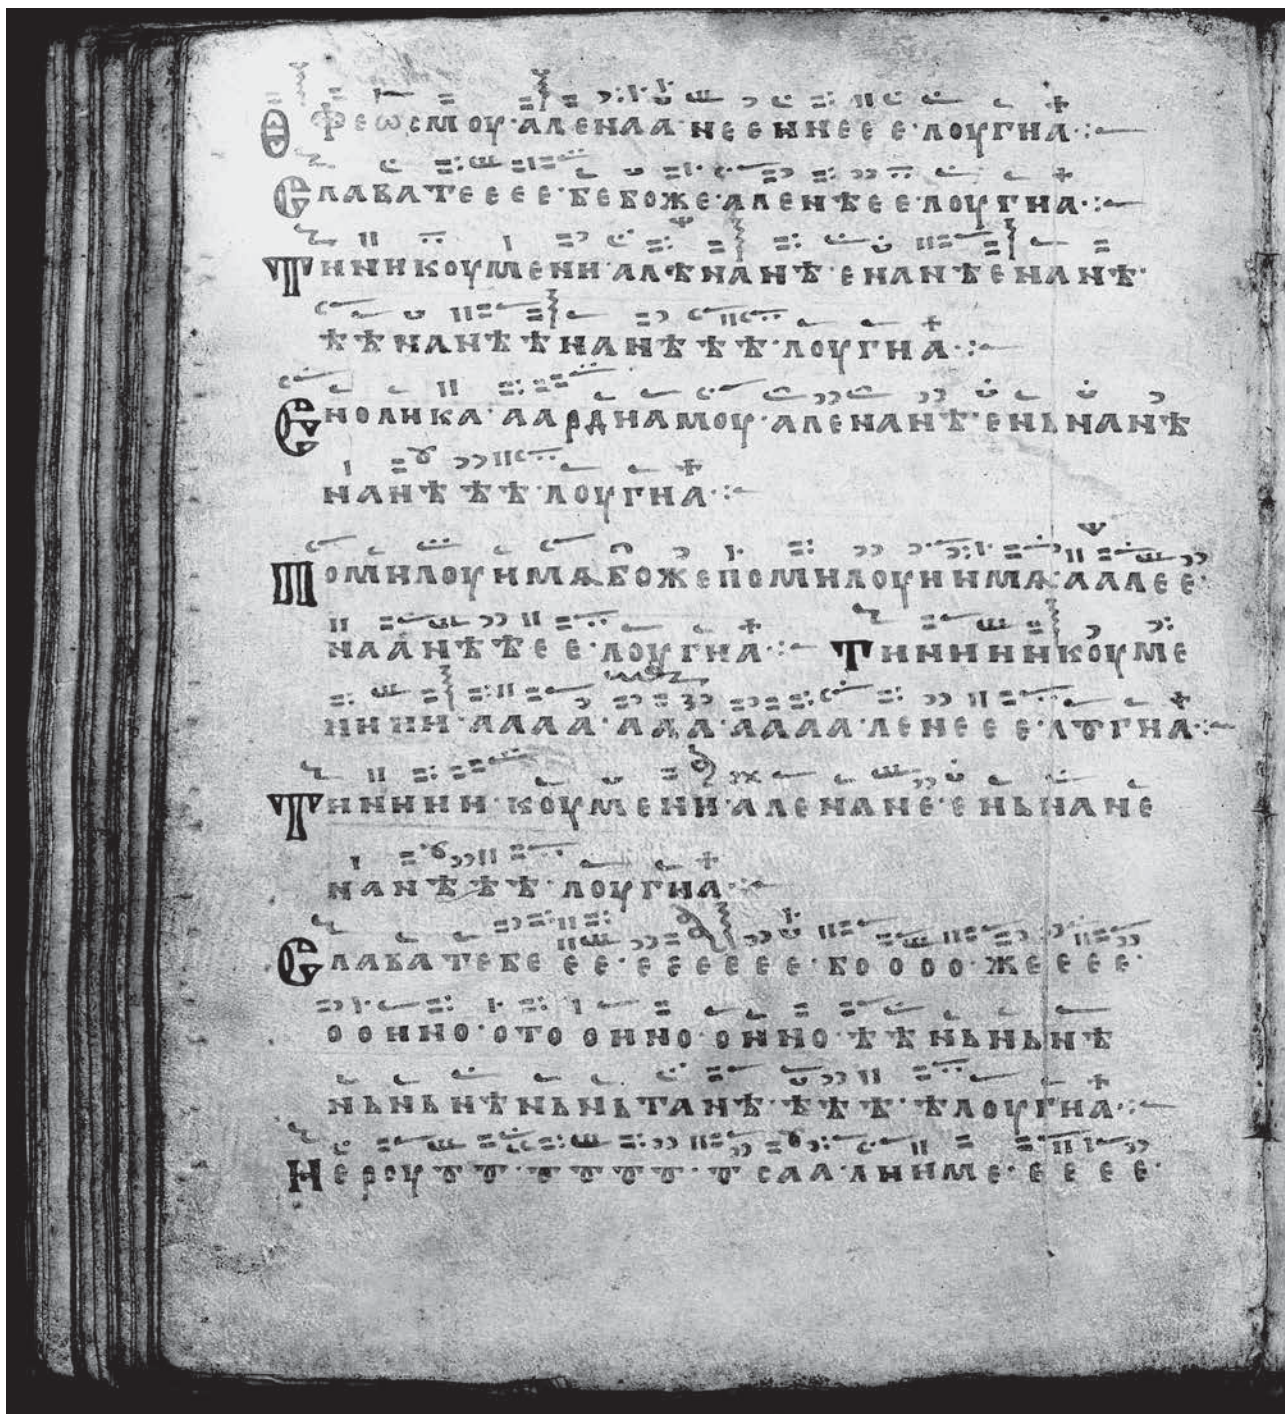 Ѳ феѡсмоу·аленаа·неенеее·лоугна·:—
Слава те е е е·бебоже·аленѣе е·лоугна·:—
Тинни коумени·алѣнанѣ·енанѣенанѣ·
ѣѣнанѣѣнанѣѣѣ·лоугна·:—
Єнолика·аарднамоу·аленанѣ·еньнанѣ
нанѣѣѣ·лоугна·:—
Помилоуимѧбожепомилоунимѧ·алаее·
налнѣѣее·лоугна·:— Тиниинкоуме
нинн·алаа·ала·алала·ленеее·лꙋгна·:—
Тнннни·коумени·аленане·еньнане
нанѣѣѣ·лоугна·:—
Слаба тебе е е·е е е е е е·бо о о о·же е е е·
о оинно·ото оинно·оинно·ѣѣньньнѣ
ньньнѣньньтанѣ·ѣѣѣ·ѣлоугна·:—
Нероу ꙋ ꙋ·ꙋ ꙋ ꙋ ꙋ·ꙋ саа·лниме·е е е е·